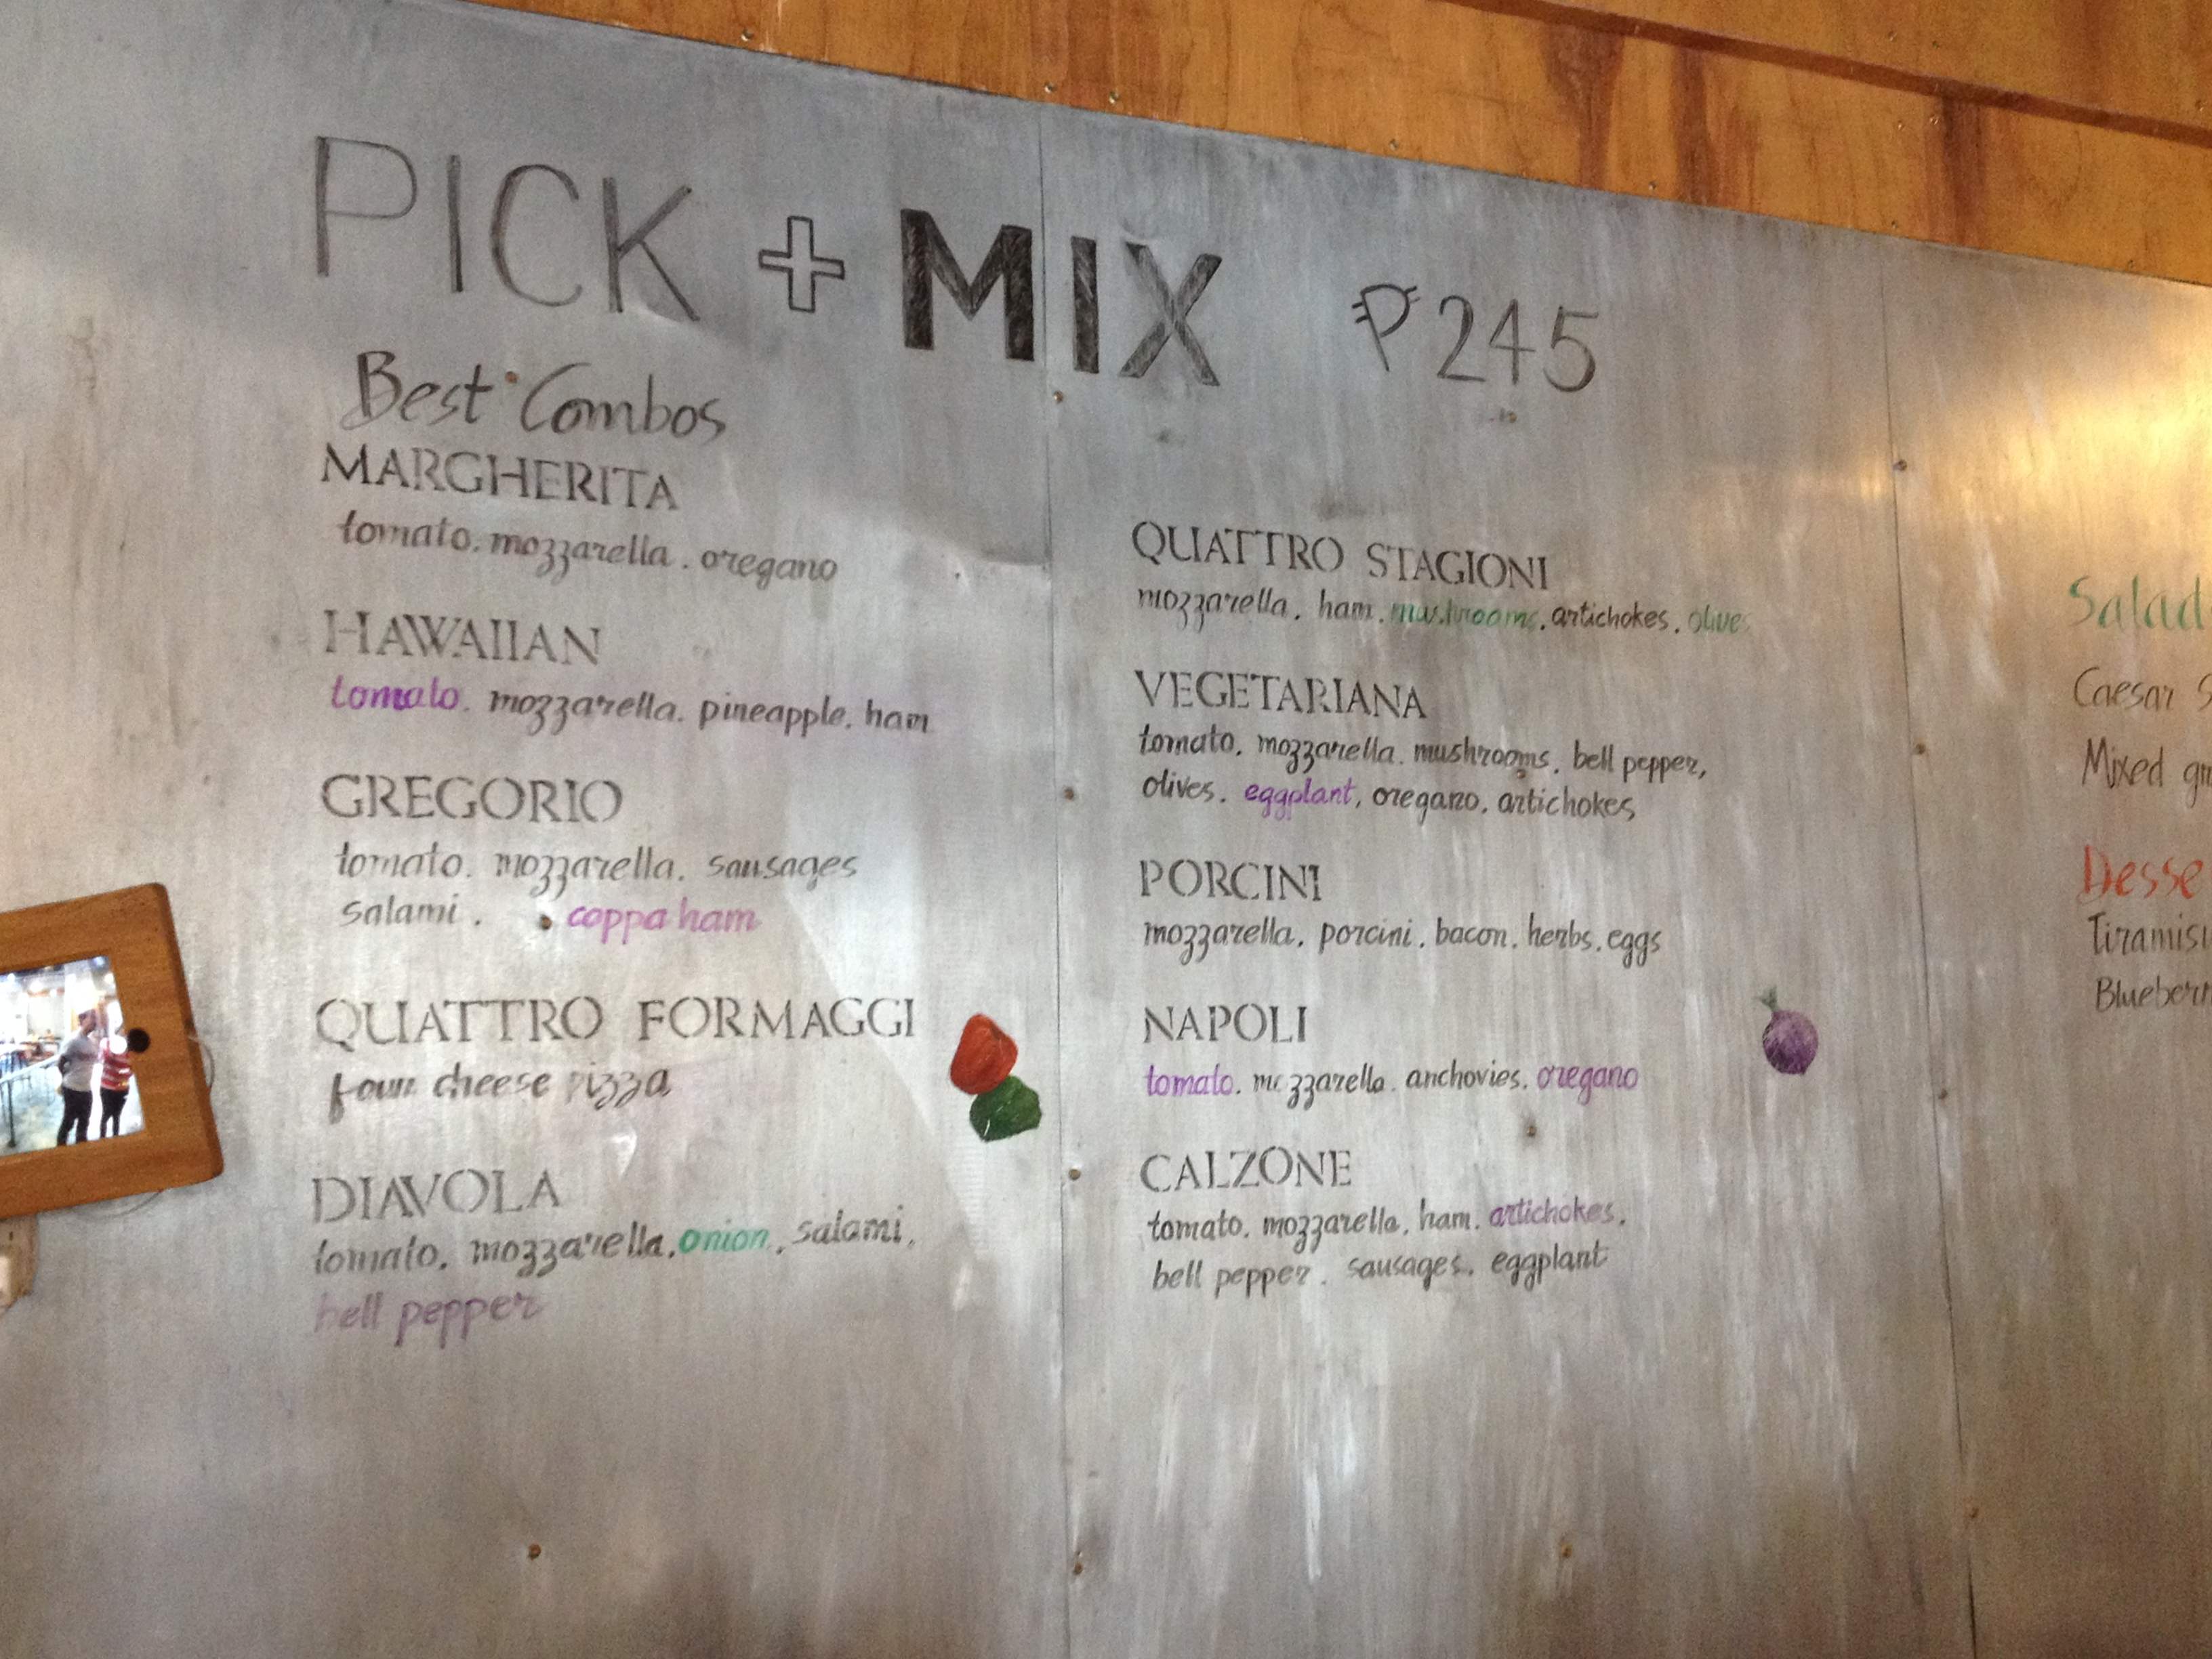 PICK + MIX ₱245
Best Combos
MARGHERITA
tomato. mozzarella. oregano
HAWAIIAN
tomato. mozzarella. pineapple. ham
GREGORIO
tomato. mozzarella. sausages
salami. coppa ham
QUATTRO FORMAGGI
four cheese pizza
DIAVOLA
tomato. mozzarella. onion. salami.
bell pepper
QUATTRO STAGIONI
mozzarella. ham. mushrooms. artichokes. olives
VEGETARIANA
tomato. mozzarella. mushrooms. bell pepper,
olives. eggplant, oregano. artichokes
PORCINI
mozzarella. porcini. bacon. herbs. eggs
NAPOLI
tomato. mozzarella. anchovies. oregano
CALZONE
tomato. mozzarella. ham. artichokes.
bell pepper. sausages. eggplant
Salad
Caesar
Mixed